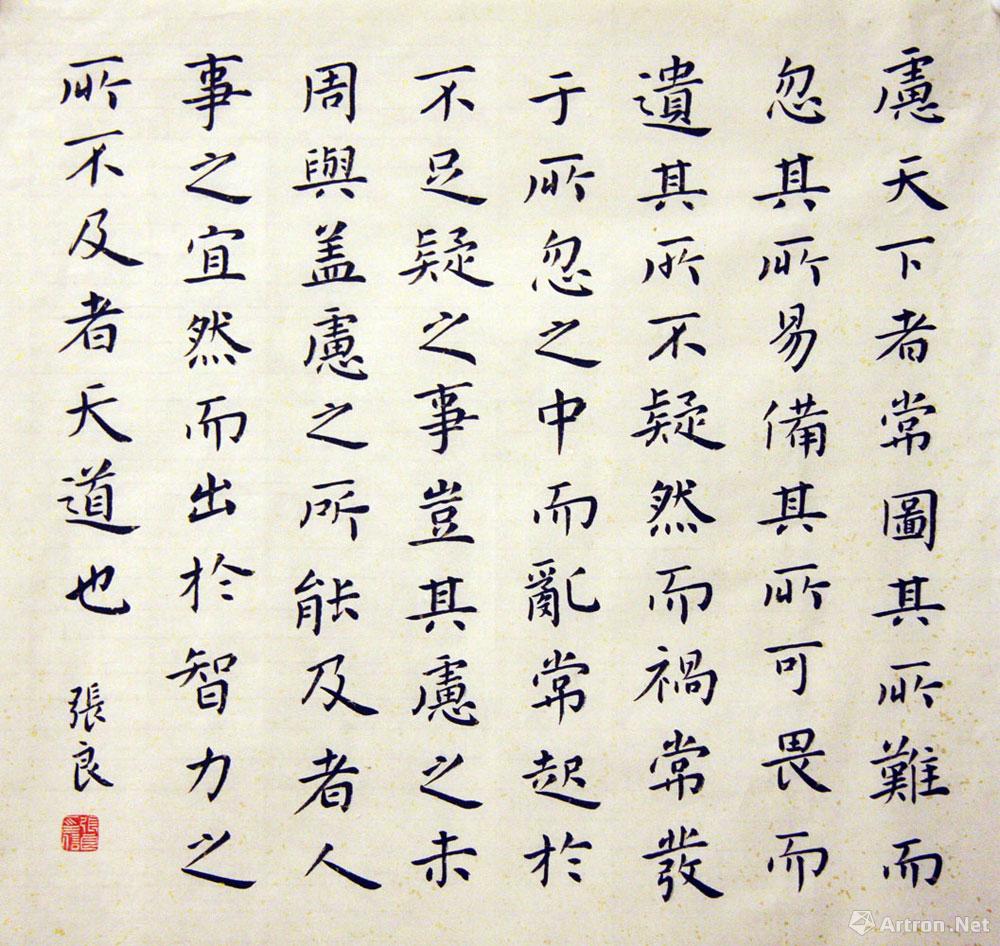 慮天下者常圖其所難而
忽其所易備其所可畏而
遺其所不疑然而禍常發
于所忽之中而亂常起於
不足疑之事豈其慮之未
周與盖慮之所能及者人
事之宜然而出於智力之
所不及者天道也
張良
Artron.Net